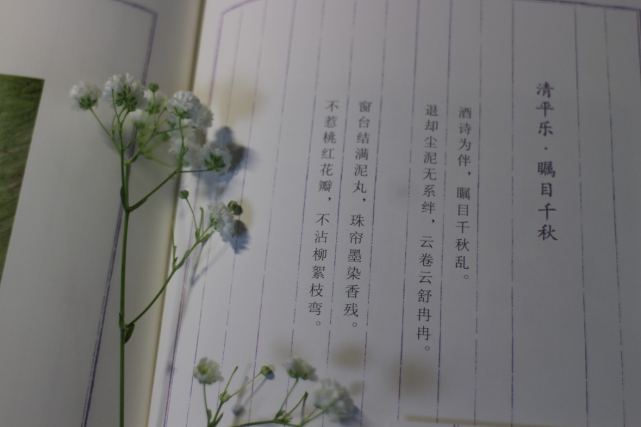 清平乐·瞩目千秋
酒诗为伴，瞩目千秋乱。
退却尘泥无系绊，云卷云舒冉冉。
窗台结满泥丸，珠帘墨染香残。
不惹桃红花瓣，不沾柳絮枝弯。